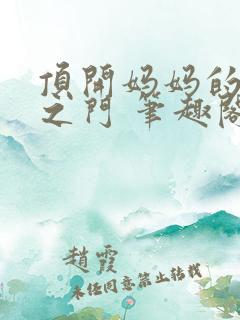 頂開妈妈的
之门 筆趣阁
趙霞
未经同意禁止转载